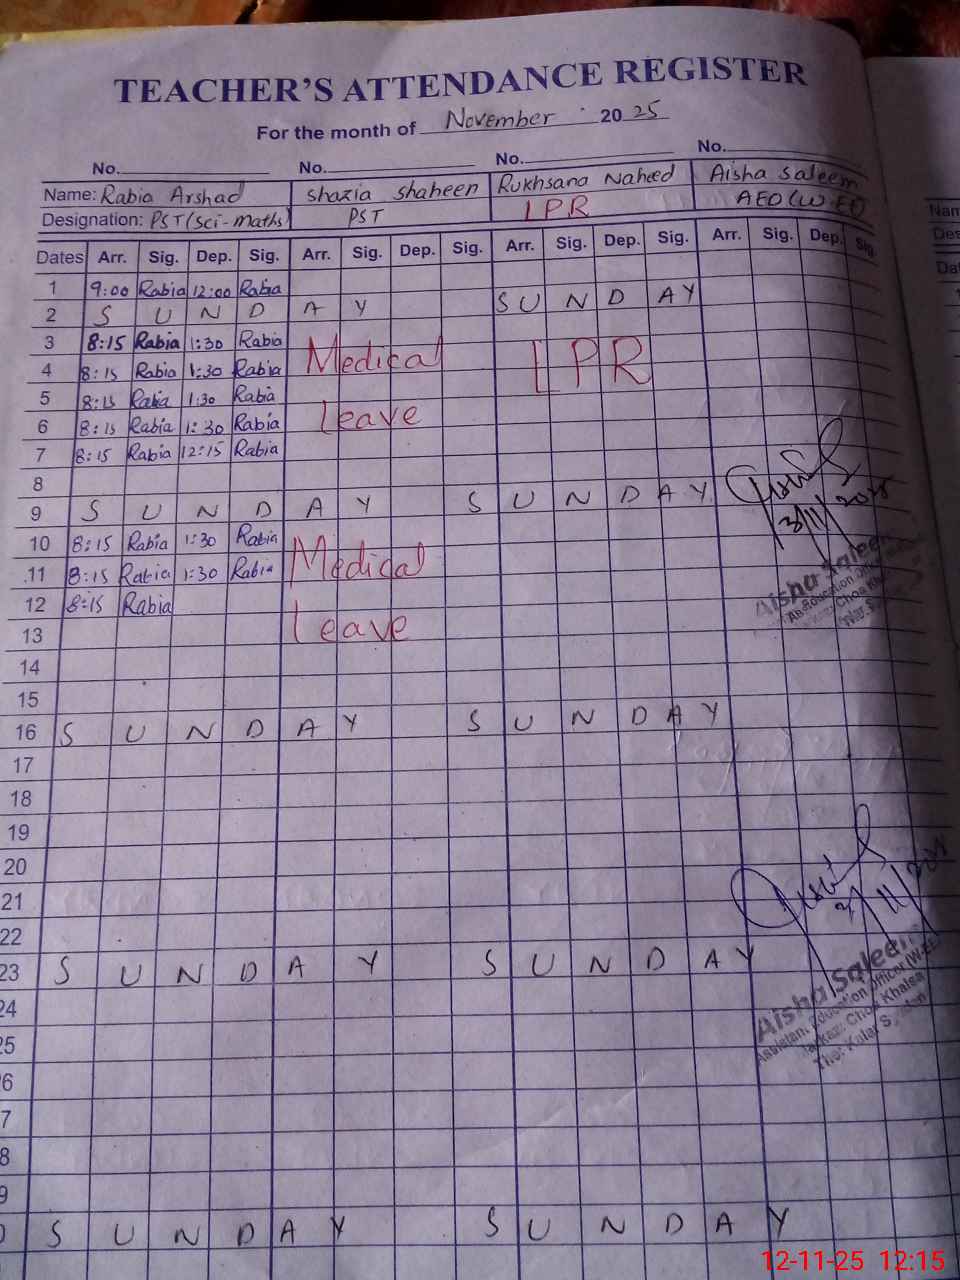 TEACHER'S ATTENDANCE REGISTER
For the month of November 2025
No. No. No. No.
Name: Rabia Arshad Shazia Shaheen Rukhsana Naheed Aisha Saleem
Designation: PST (Sci-maths) PST LPR AEO (W.EE)
Dates Arr. Sig. Dep. Sig. Arr. Sig. Dep. Sig. Arr. Sig. Dep. Sig. Arr. Sig. Dep. Sig.
1 9:00 Rabia 12:00 Rabia
2 S U N D A Y S U N D A Y
3 8:15 Rabia 1:30 Rabia Medical LPR
4 8:15 Rabia 1:30 Rabia
5 8:15 Rabia 1:30 Rabia
6 8:15 Rabia 1:30 Rabia leave
7 8:15 Rabia 12:15 Rabia
8
9 S U N D A Y S U N D A Y
10 8:15 Rabia 1:30 Rabia Medical
11 8:15 Rabia 1:30 Rabia
12 8:15 Rabia
13 leave
Aisha Saleem
14
15
16 S U N D A Y S U N D A Y
17
18
19
20
21
22
23 S U N D A Y S U N D A Y
24
25
Aisha Saleem
Assistant Education Officer (W.EE)
Markaz: Choa Khalsa
The: Kalar
6
7
8
9
0 S U N D A Y S U N D A Y
12-11-25 12:15
Nam
Des
Dat